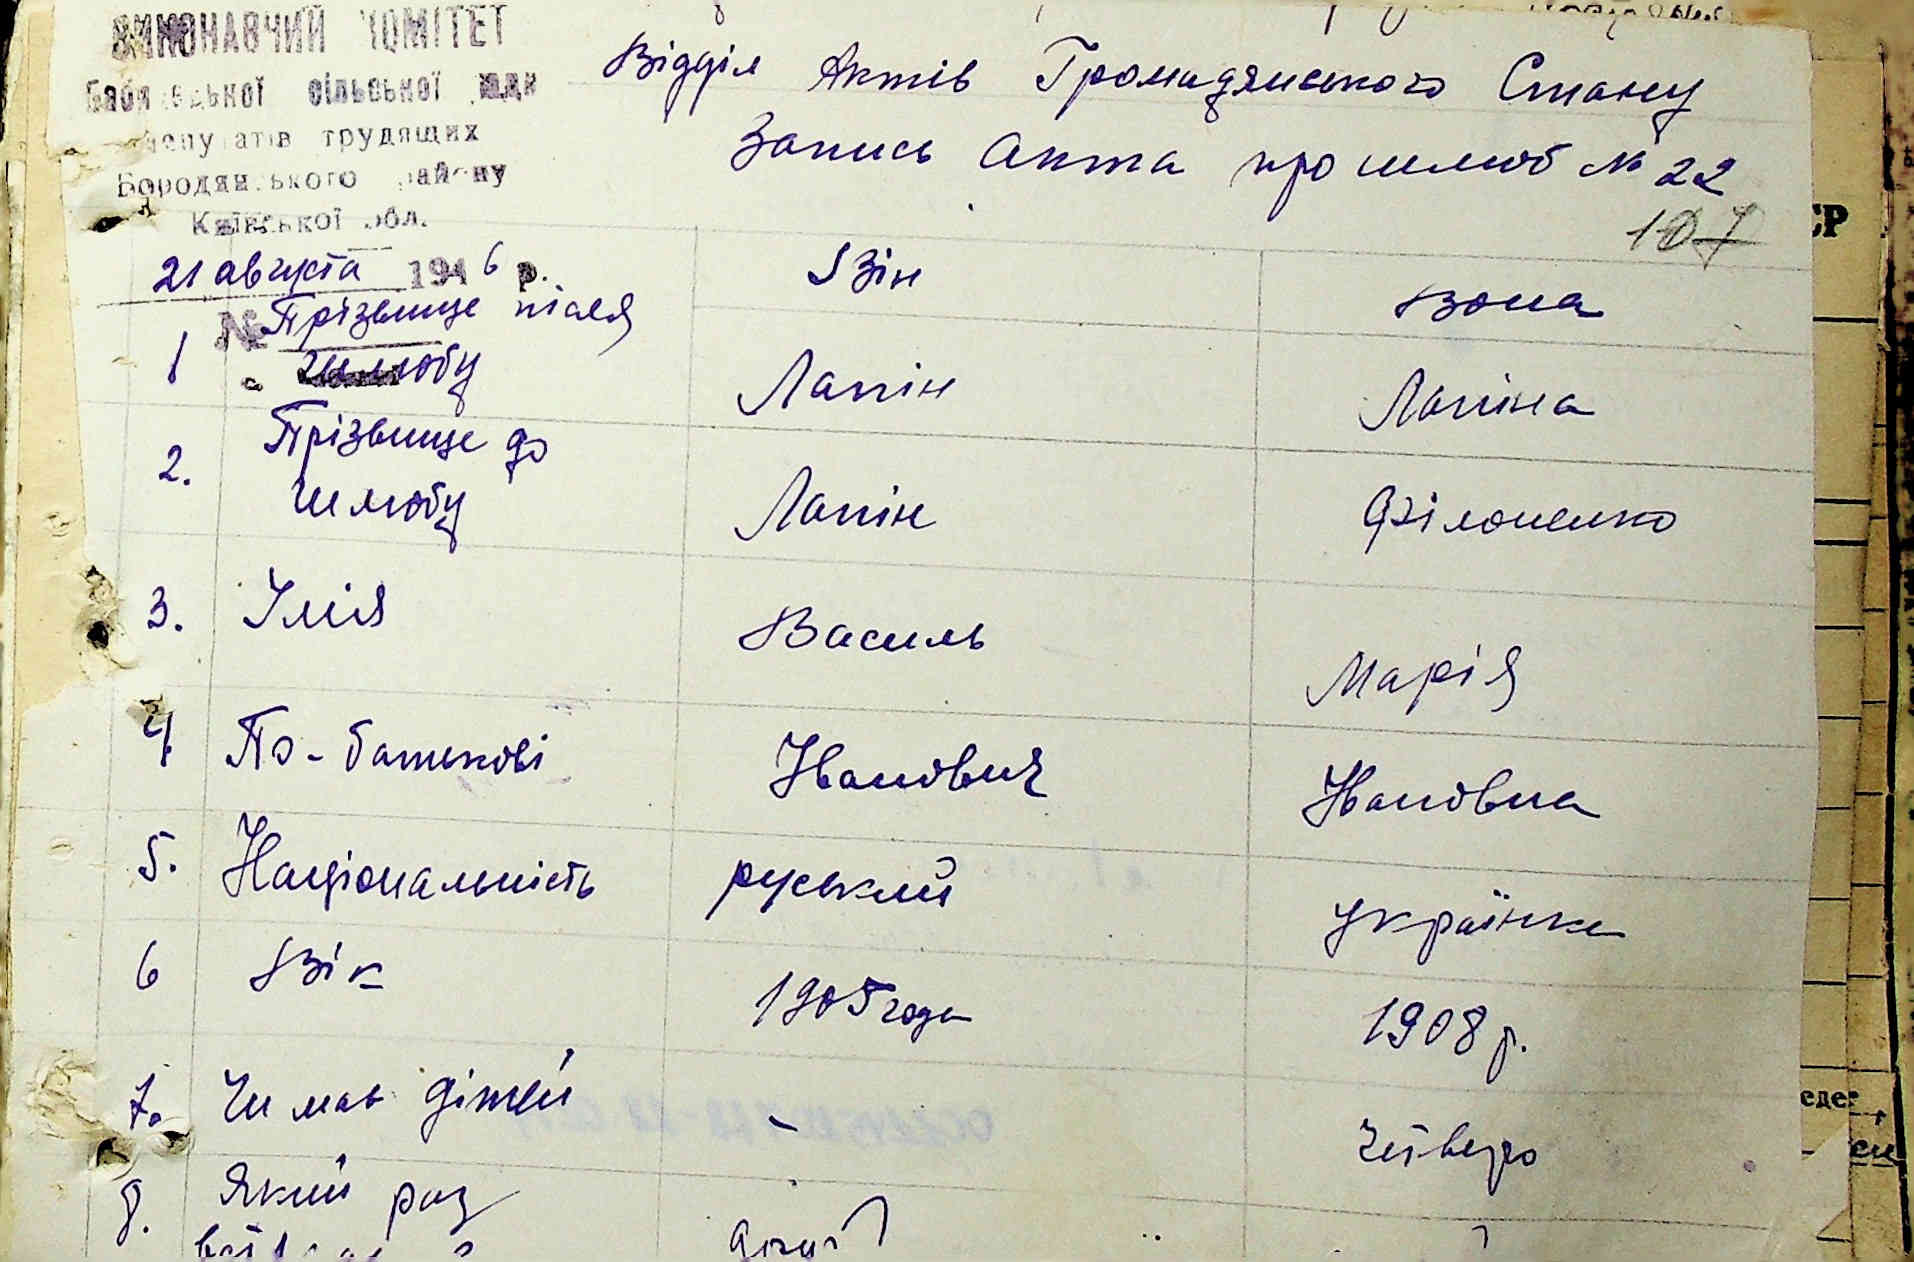 ВИКОНАВЧИЙ КОМІТЕТ
сільської ради
депутатів трудящих
Бородянського району
Київської обл.
21 августа 1946 р.
№
Відділ Актів Громадянського Стану
Запись Акта про шлюб № 22
107
Він Вона
1 Прізвище після шлюбу Лапін Лапіна
2. Прізвище до шлюбу Лапін Філоненко
3. Імія Василь Марія
4. По-батькові Іванович Івановна
5. Національність руський українка
6 Вік 1905 года 1908 р.
7. Чи мав дітей - четверо
8. Який раз